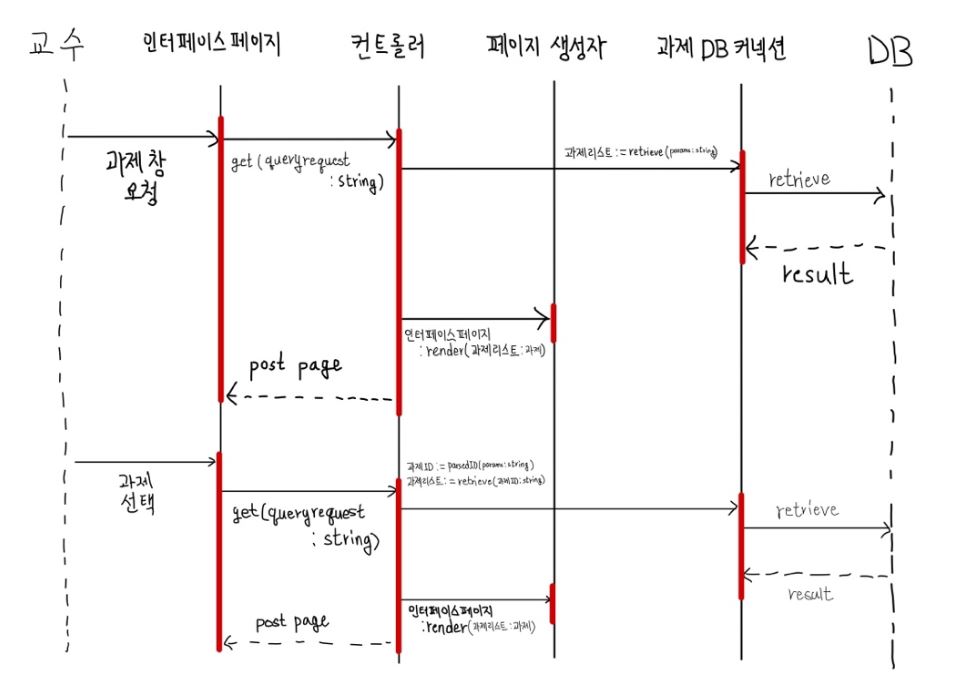 교수
인터페이스페이지
컨트롤러
페이지 생성자
과제 DB 커넥션
DB
과제 창
요청
get(queryrequest
: string)
과제리스트 := retrieve(params : string)
retrieve
result
인터페이스페이지
: render(과제리스트 : 과제)
post page
과제
선택
get(queryrequest
: string)
과제ID := parsedID(params : string)
과제리스트 := retrieve(과제ID : string)
retrieve
result
인터페이스페이지
: render(과제리스트 : 과제)
post page